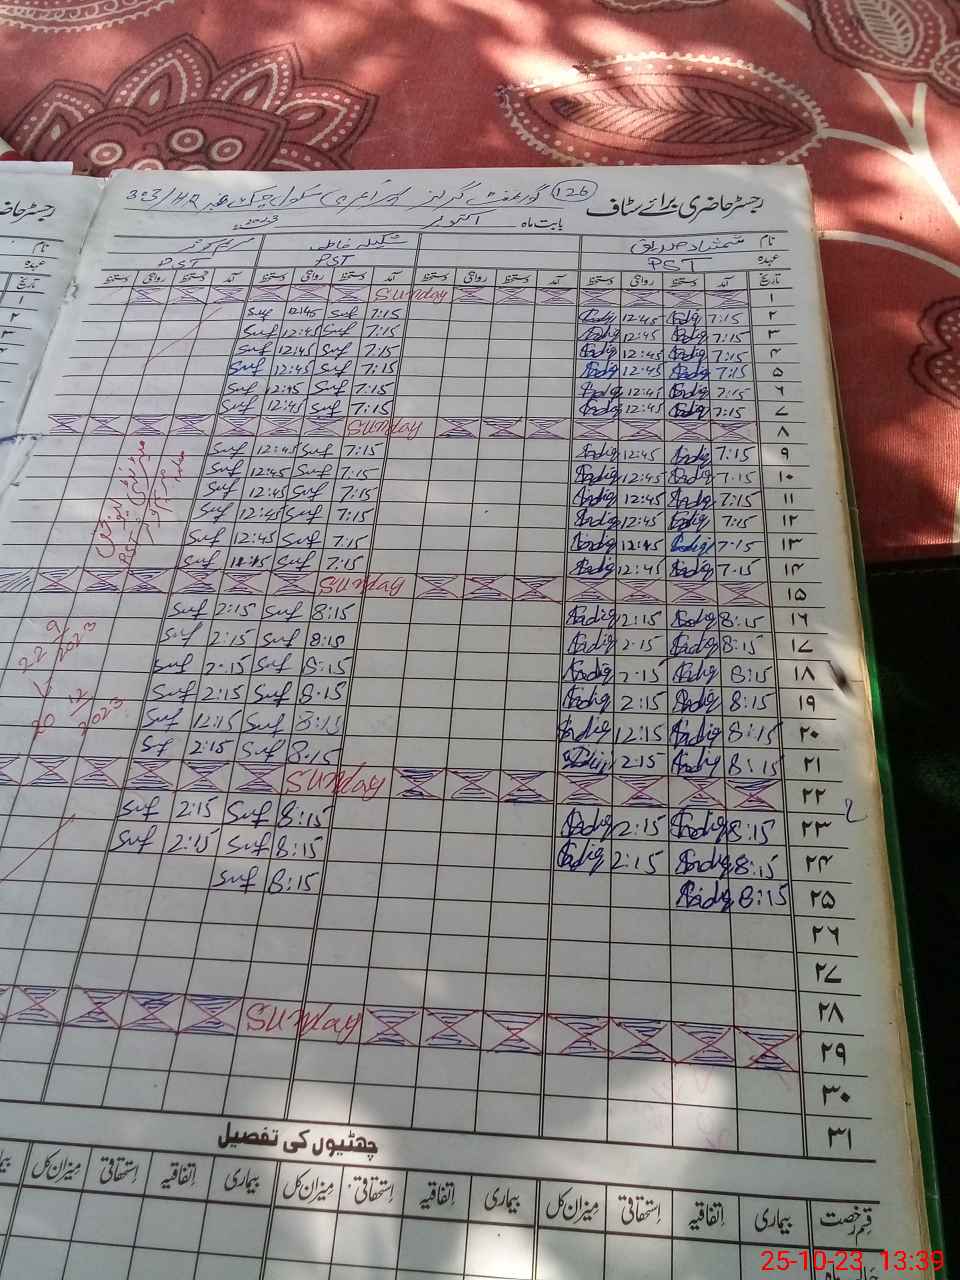 رجسٹر حاضری برائے سٹاف (126) گورنمنٹ گرلز پرائمری سکول چک نمبر 303/HR
بابت ماہ اکتوبر 2023
نام شمشاد صدیق شکیلہ فاطمہ
عہدہ PST PST PST
تاریخ آمد دستخط روانگی دستخط آمد دستخط روانگی دستخط آمد دستخط روانگی دستخط آمد دستخط روانگی دستخط
۱ Sunday
۲ 7:15 Sadiq 12:45 Sadiq 7:15 Suf 12:45 Suf
۳ 7:15 Sadiq 12:45 Sadiq 7:15 Suf 12:45 Suf
۴ 7:15 Sadiq 12:45 Sadiq 7:15 Suf 12:45 Suf
۵ 7:15 Sadiq 12:45 Sadiq 7:15 Suf 12:45 Suf
۶ 7:15 Sadiq 12:45 Sadiq 7:15 Suf 12:45 Suf
۷ 7:15 Sadiq 12:45 Sadiq 7:15 Suf 12:45 Suf
۸ Sunday
۹ 7:15 Sadiq 12:45 Sadiq 7:15 Suf 12:45 Suf
۱۰ 7:15 Sadiq 12:45 Sadiq 7:15 Suf 12:45 Suf
۱۱ 7:15 Sadiq 12:45 Sadiq 7:15 Suf 12:45 Suf
۱۲ 7:15 Sadiq 12:45 Sadiq 7:15 Suf 12:45 Suf
۱۳ 7:15 Sadiq 12:45 Sadiq 7:15 Suf 12:45 Suf
۱۴ 7:15 Sadiq 12:45 Sadiq 7:15 Suf 12:45 Suf
۱۵ Sunday
۱۶ 8:15 Sadiq 2:15 Sadiq 8:15 Suf 2:15 Suf
۱۷ 8:15 Sadiq 2:15 Sadiq 8:15 Suf 2:15 Suf
۱۸ 8:15 Sadiq 2:15 Sadiq 8:15 Suf 2:15 Suf
۱۹ 8:15 Sadiq 2:15 Sadiq 8:15 Suf 2:15 Suf
۲۰ 8:15 Sadiq 12:15 Sadiq 8:15 Suf 12:15 Suf
۲۱ 8:15 Sadiq 2:15 Sadiq 8:15 Suf 2:15 Suf
۲۲ Sunday
۲۳ 8:15 Sadiq 2:15 Sadiq 8:15 Suf 2:15 Suf
۲۴ 8:15 Sadiq 2:15 Sadiq 8:15 Suf 2:15 Suf
۲۵ 8:15 Sadiq 8:15 Suf
۲۶
۲۷
۲۸
۲۹ Sunday
۳۰
۳۱
PST
22 9 2023
20 12 2023
چھٹیوں کی تفصیل
قسم رخصت بیماری اتفاقیہ استحقاقی میزان کل بیماری اتفاقیہ استحقاقی میزان کل بیماری اتفاقیہ استحقاقی میزان کل
25-10-23 13:39